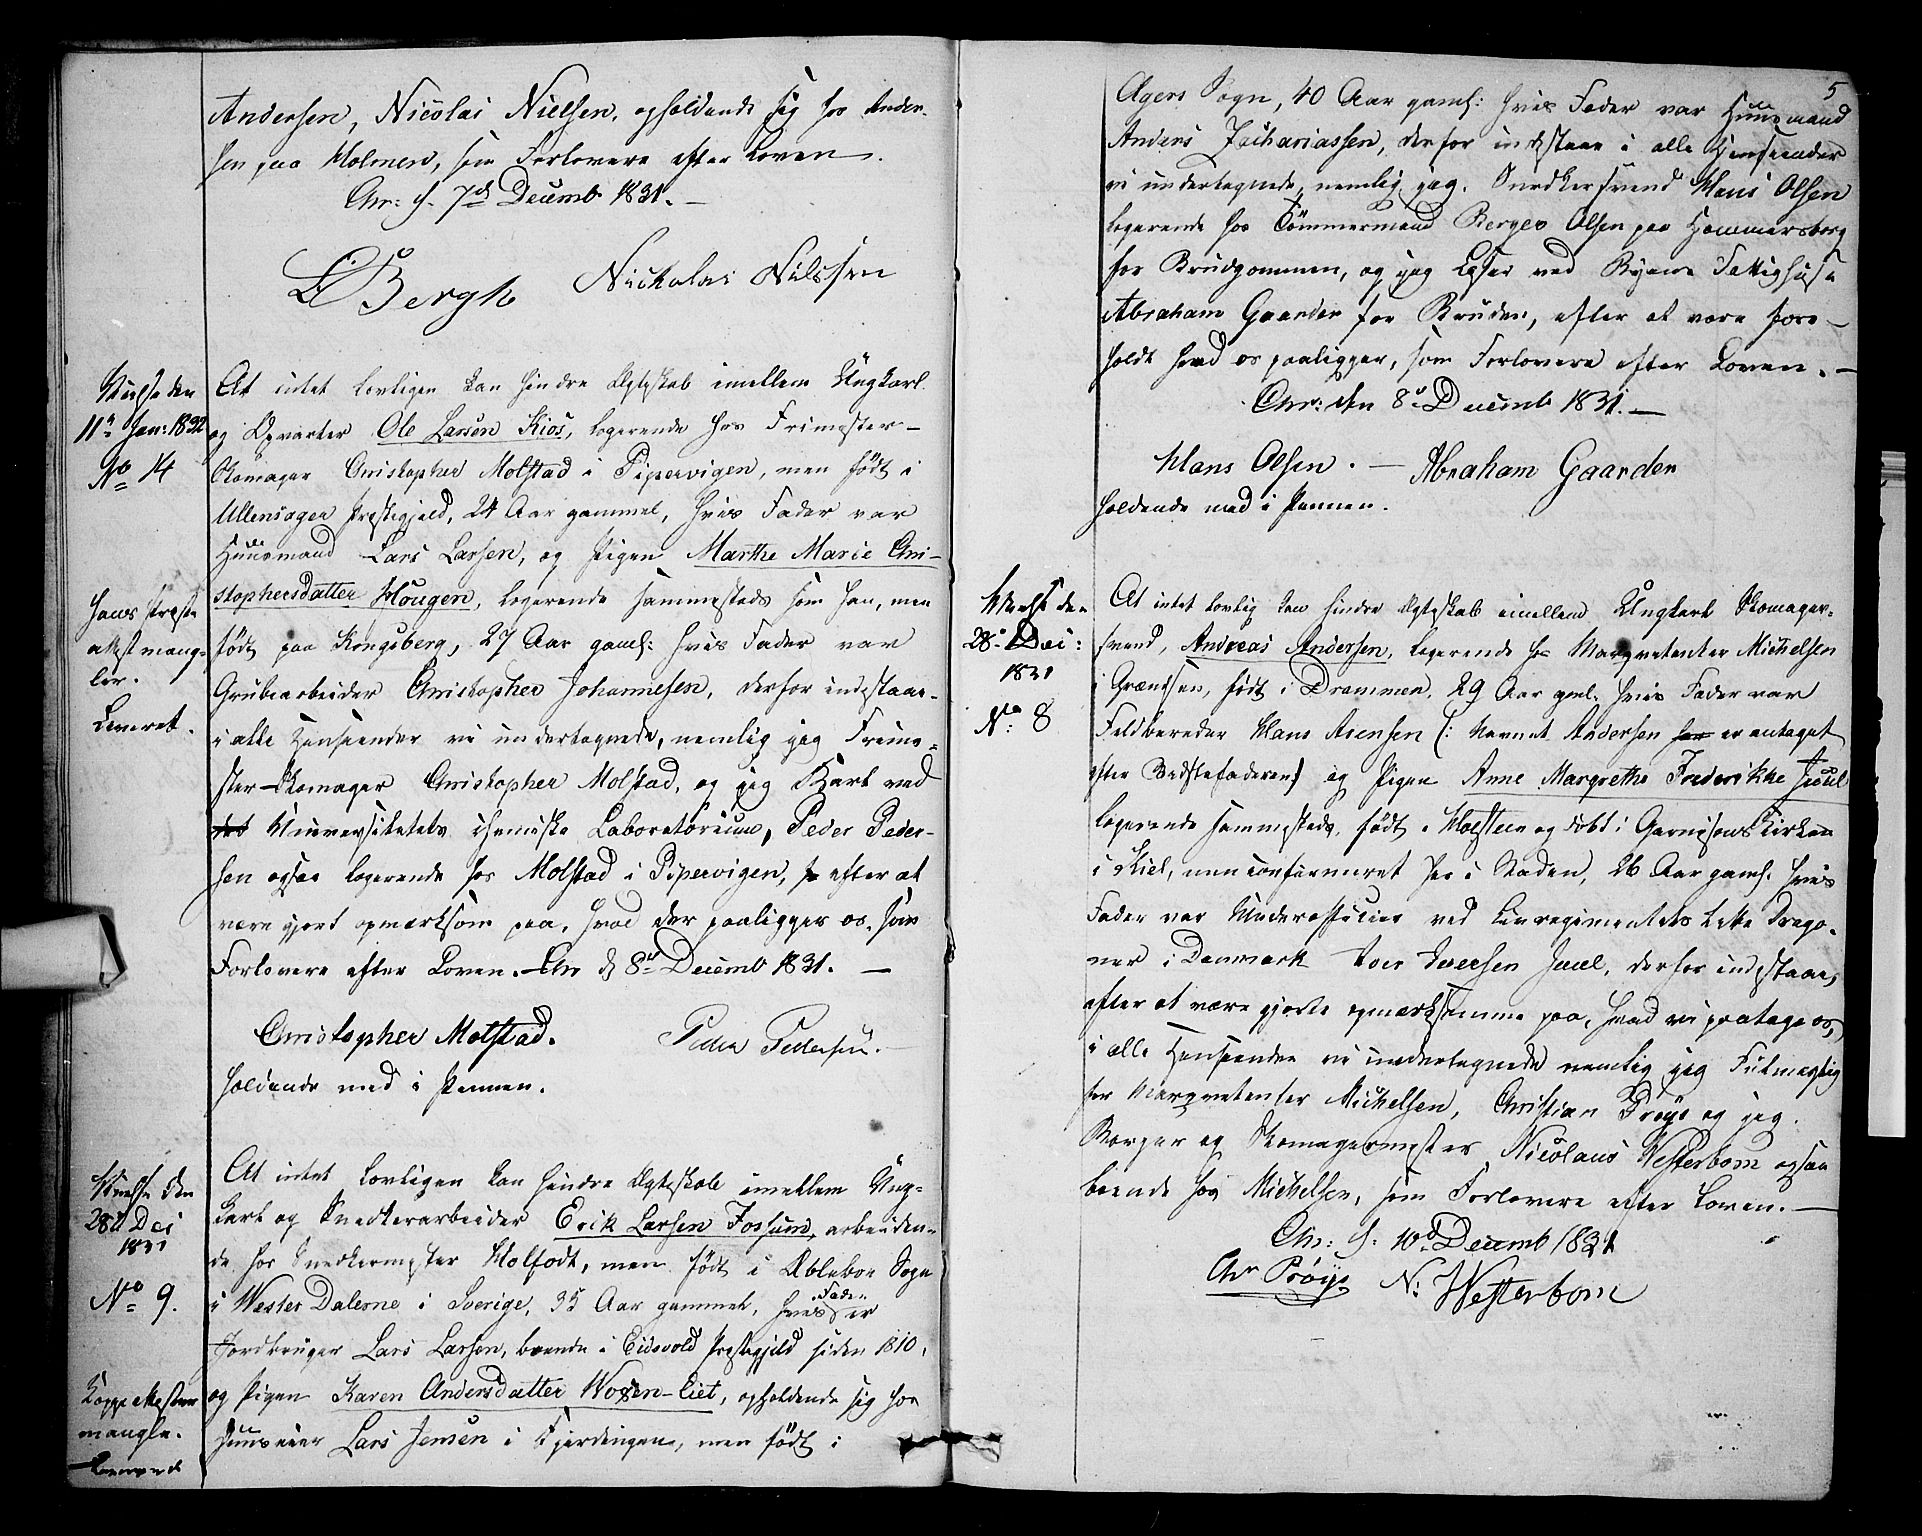 Andersen, Nicolai Nielsen, opholdende sig hos Ander-
sen paa Holmen, som Forlovere efter Loven.
Chr: d. 7de Decemb 1831. —
Bergh Nickolai Nilssen
Viede den
11te Jan: 1832
No 14
At intet lovligen kan hindre Ægteskab imellem Ungkarl
og Opvarter Ole Larsen Kios, logerende hos Frimester-
Skomager Christopher Molstad i Pipervigen, men født i
Ullensager Præstegjeld, 24 Aar gammel, hvis Fader var
Huusmand Lars Larsen, og Pigen Marthe Marie Chri-
stophersdatter Hougen, logerende sammesteds som han, men
født paa Kongsberg, 27 Aar gaml: hvis Fader var
Grubearbeider Christopher Johannesen, derfor indestaae
i alle Henseender vi undertegnede, nemlig jeg Frime-
ster-Skomager Christopher Molstad, og jeg Karl ved
det Universitetets chemiske Laboratorium, Peder Peder-
sen ogsaa logerende hos Molstad i Pipervigen, efter at
være gjort opmærksom paa, hvad der paaligger os, som
Forlovere efter Loven. Chr d 8de Decemb 1831. —
Hans Præste
attest mang-
ler.
Leveret.
Christopher Molstad. Peder Pedersen. —
holdende med i Pennen.
Viede den
28de Dec
1831
No 9.
At intet lovligen kan hindre Ægteskab imellem Ung-
karl og Snedkerarbeider Erik Larsen Fossum, arbeiden-
de hos Snedkermester Holfodt, men født i Sogn
i Wester Dalerne i Sverige, 35 Aar gammel, hvis Fader er
Jordbruger Lars Larsen, boende i Eidsvold Præstegjeld siden 1810,
og Pigen Karen Andersdatter Woxen-Eiet, opholdende sig hos
Huuseier Lars Jensen i Fjerdingen, men født i
Koppeattesterne
mangle.
Leverede
5
Agers Sogn, 40 Aar gaml: hvis Fader var Huusmand
Anders Zachariassen, derfor indestaae i alle Henseender
vi undertegnede, nemlig jeg. Snedkersvend Hans Olsen
logerende hos Tømmermand Berger Olsen paa Hammersborg
for Brudgommen, og jeg ved Byens Fattighuse
Abraham Gaarder for Bruden, efter at være fore-
holdt hvad os paaligger, som Forlovere efter Loven. —
Chr: den 8de Decemb 1831. —
Hans Olsen. — Abraham Gaarder
holdende med i Pennen.
Viede den
28de Dec:
1831
No: 8
At intet lovlig kan hindre Ægteskab imellem Ungkarl Skomager-
svend, Andreas Andersen, logerende hos Marqvetenter Michelsen
i Grændsen, født i Drammen, 29 Aar gml. hvis Fader var
Feldbereder Hans Arensen (: Navnet Andersen har er antaget
efter Bedstefaderen) og Pigen Anne Margrethe Frederikke Juul
logerende sammesteds, født i Holsteen og døbt i Garnisons Kirken
i Kiel, men confirmeret her i Staden, 26 Aar gaml. hvis
Fader var Underofficier ved Livregimentets lette Drago-
ner i Danmark Iver Iversen Juul, derfor indestaae,
efter at være gjorte opmærksomme paa, hvad vi paatage os,
i alle Henseender vi undertegnede nemlig jeg Fuldmægtig
for Marqvetenter Michelsen, Christian Prøys og jeg.
Borger og Skomagermester Nicolaus Westerbom ogsaa
boende hos Michelsen, som Forlovere efter Loven. —
Chr: d. 10de Decemb 1831
Chr Prøys N: Westerbom